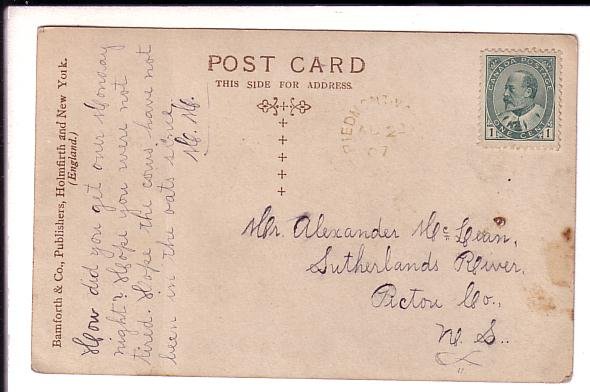 POST CARD
THIS SIDE FOR ADDRESS.
CANADA POSTAGE
1 ONE CENT 1
PIEDMONT
27
07
Bamforth & Co., Publishers, Holmfirth and New York.
(England.)
How did you get over Monday
night? Hope you were not
tired. Hope the cows have not
been in the oats since
M. M.
Mr. Alexander McLean,
Sutherlands River,
Pictou Co.,
N. S..